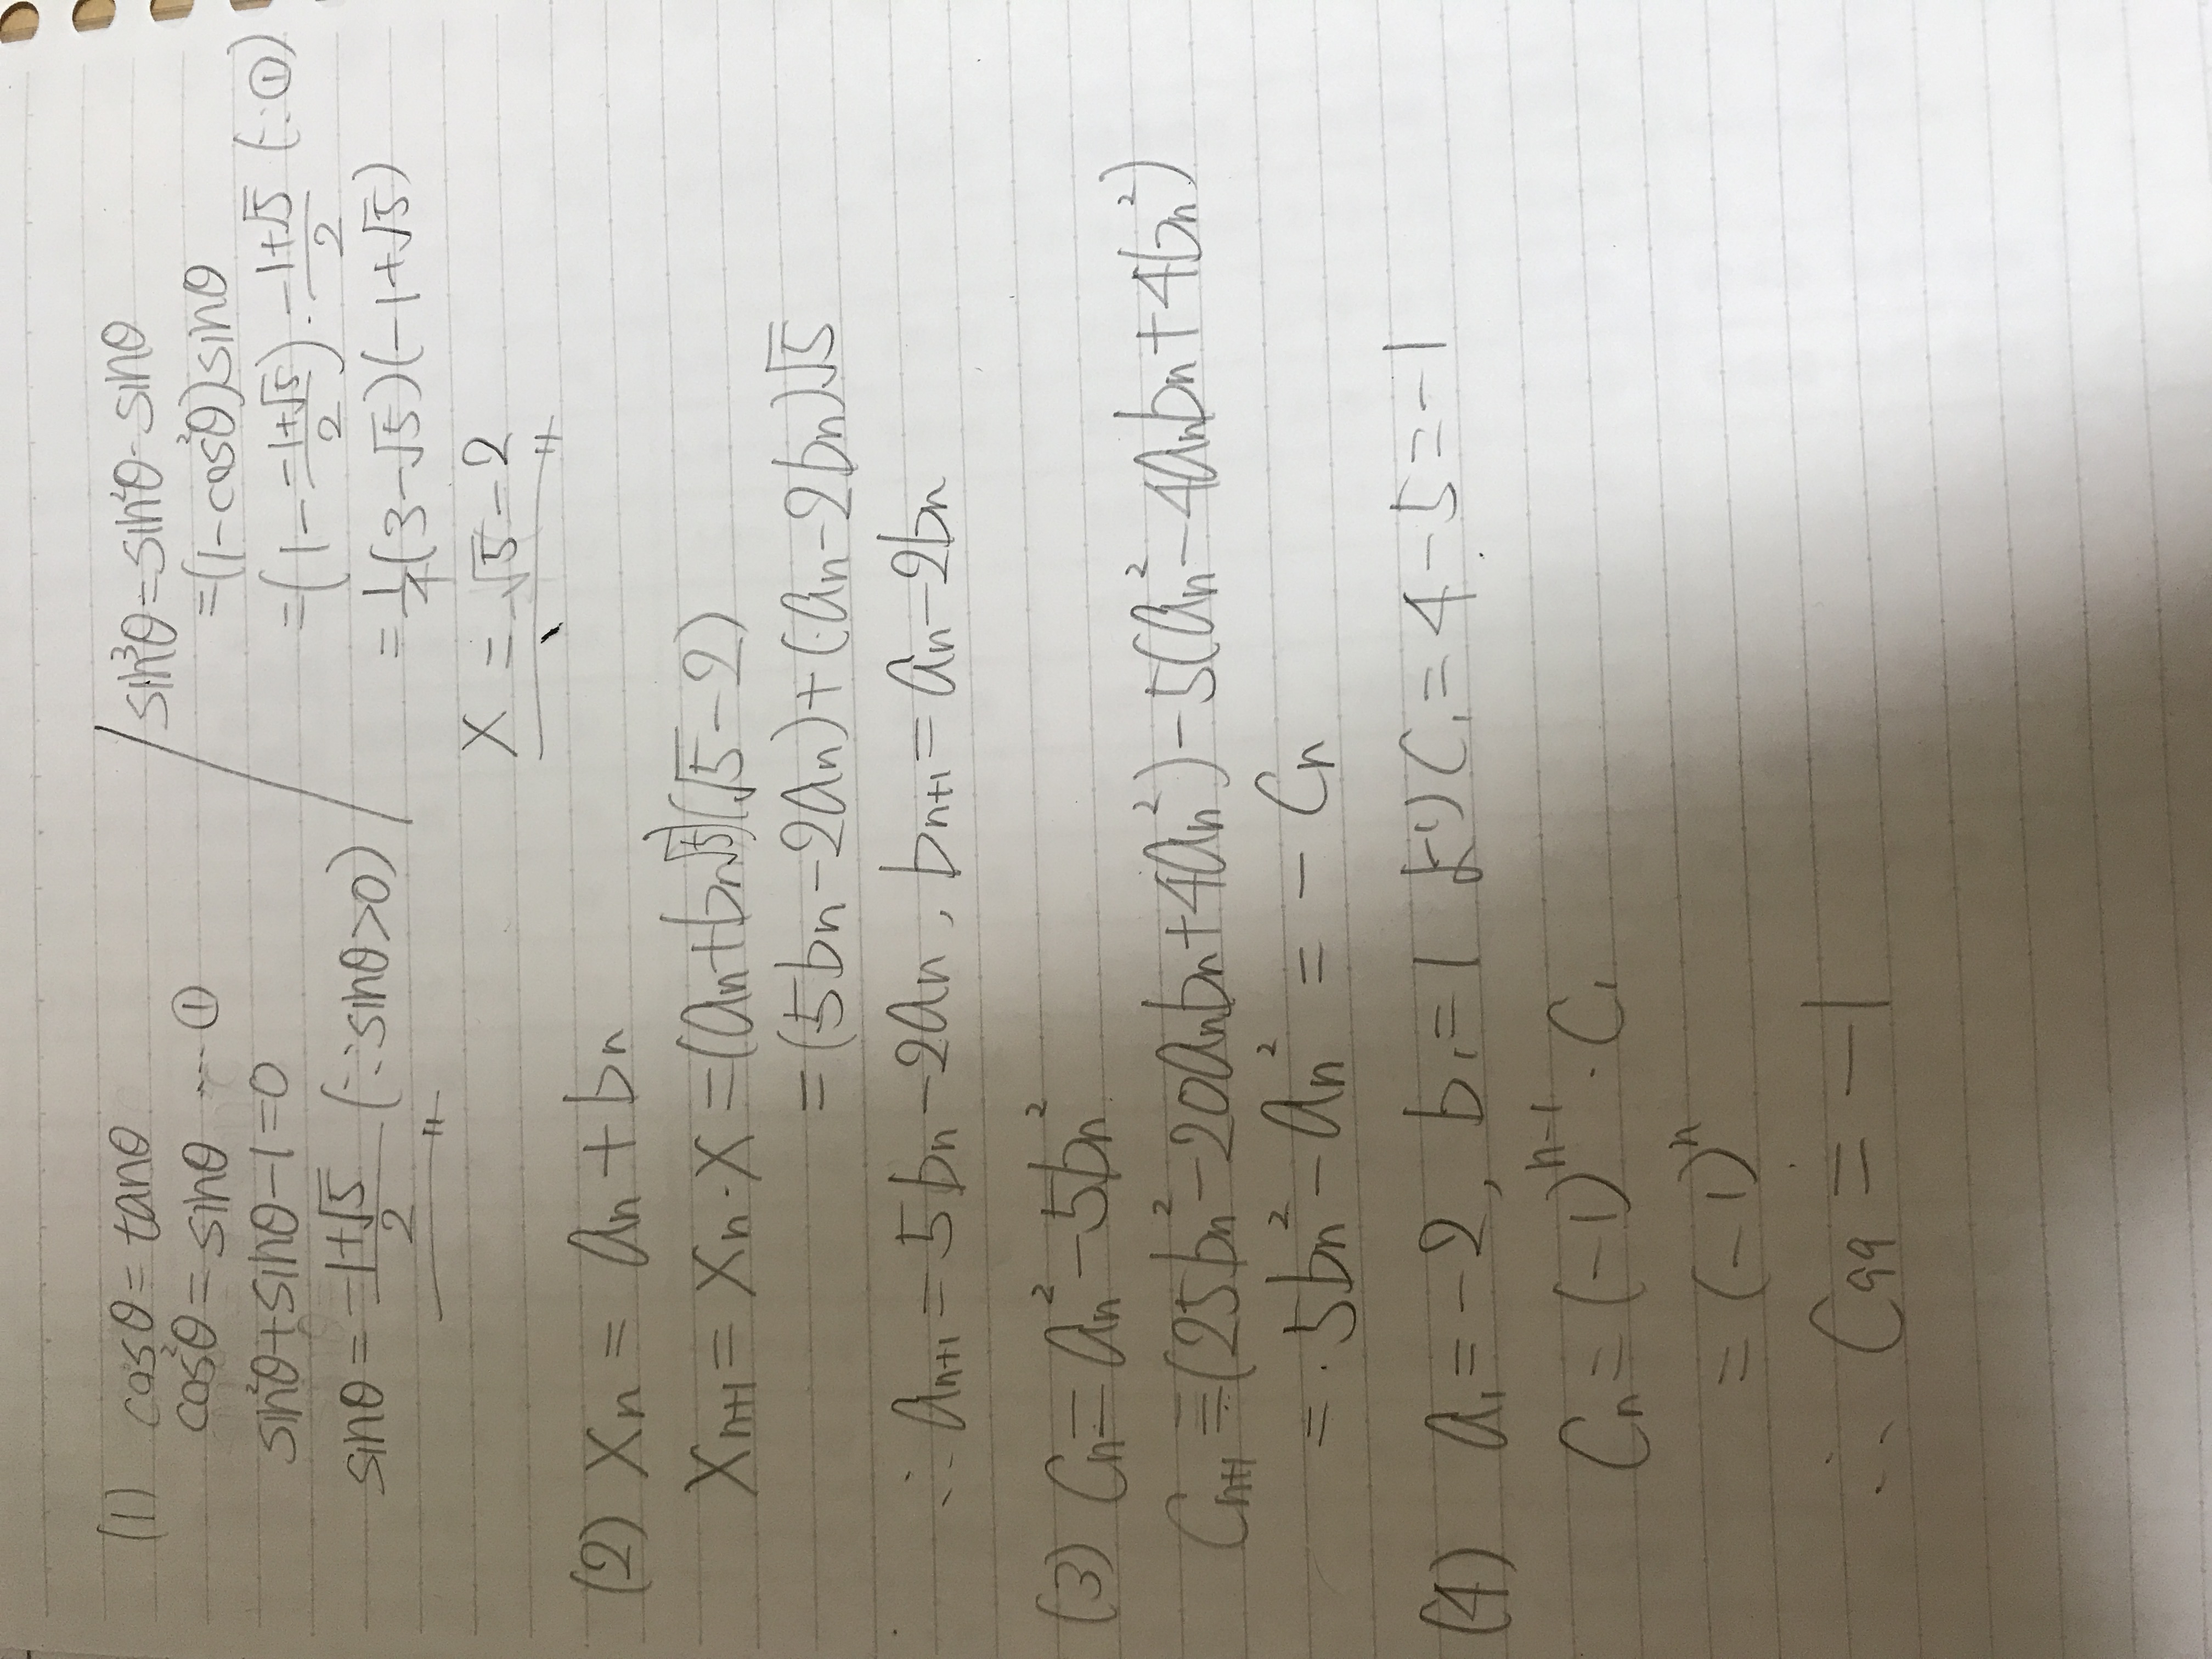 (1) cosθ = tanθ
cos²θ = sinθ … ①
sin²θ + sinθ - 1 = 0
sinθ = (-1+√5)/2 (∵ sinθ > 0)
sin³θ = sin²θ · sinθ
= (1 - cos²θ) sinθ
= (1 - (-1+√5)/2) · (-1+√5)/2 (∵ ①)
= 1/4 (3 - √5)(-1 + √5)
x = √5 - 2
(2) xₙ = aₙ + bₙ
xₙ₊₁ = xₙ · x = (aₙ + bₙ√5)(√5 - 2)
= (5bₙ - 2aₙ) + (aₙ - 2bₙ)√5
∴ aₙ₊₁ = 5bₙ - 2aₙ , bₙ₊₁ = aₙ - 2bₙ
(3) Cₙ = aₙ² - 5bₙ²
Cₙ₊₁ = (25bₙ² - 20aₙbₙ + 4aₙ²) - 5(aₙ² - 4aₙbₙ + 4bₙ²)
= 5bₙ² - aₙ² = - Cₙ
(4) a₁ = -2 , b₁ = 1 より C₁ = 4 - 5 = -1
Cₙ = (-1)ⁿ⁻¹ · C₁
= (-1)ⁿ
∴ C₉₉ = -1